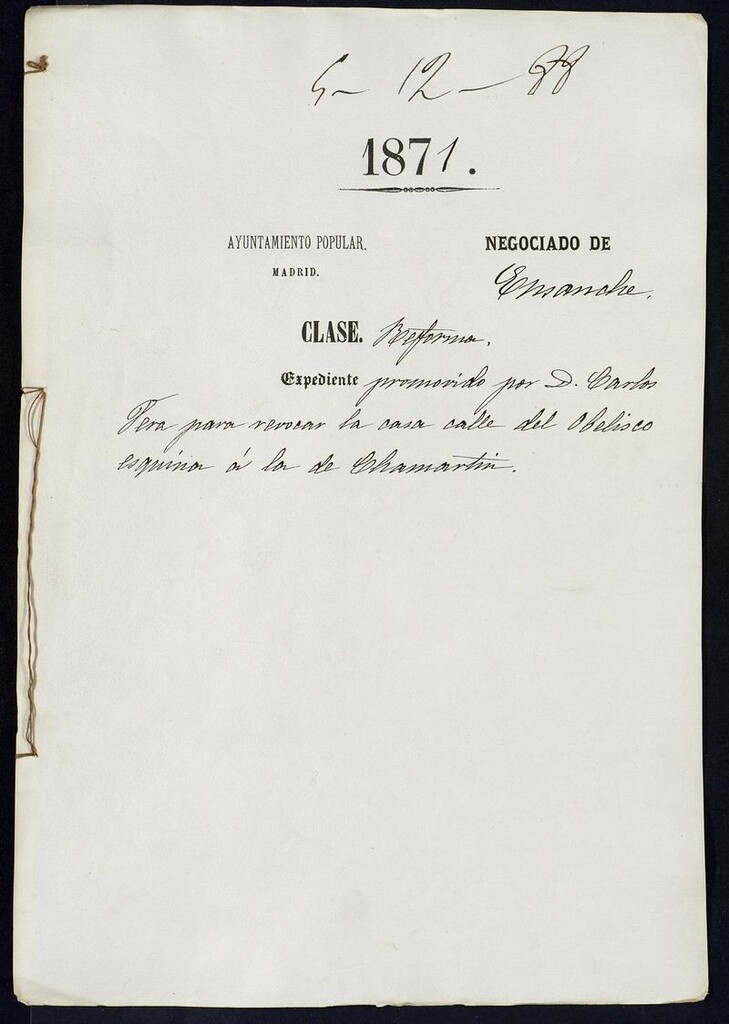 5- 12 - 88
1871.
AYUNTAMIENTO POPULAR.
MADRID.
NEGOCIADO DE
Ensanche.
CLASE. Reforma.
Expediente promovido por D. Carlos
para revocar la casa calle del Obelisco
esquina á la de Chamartin.